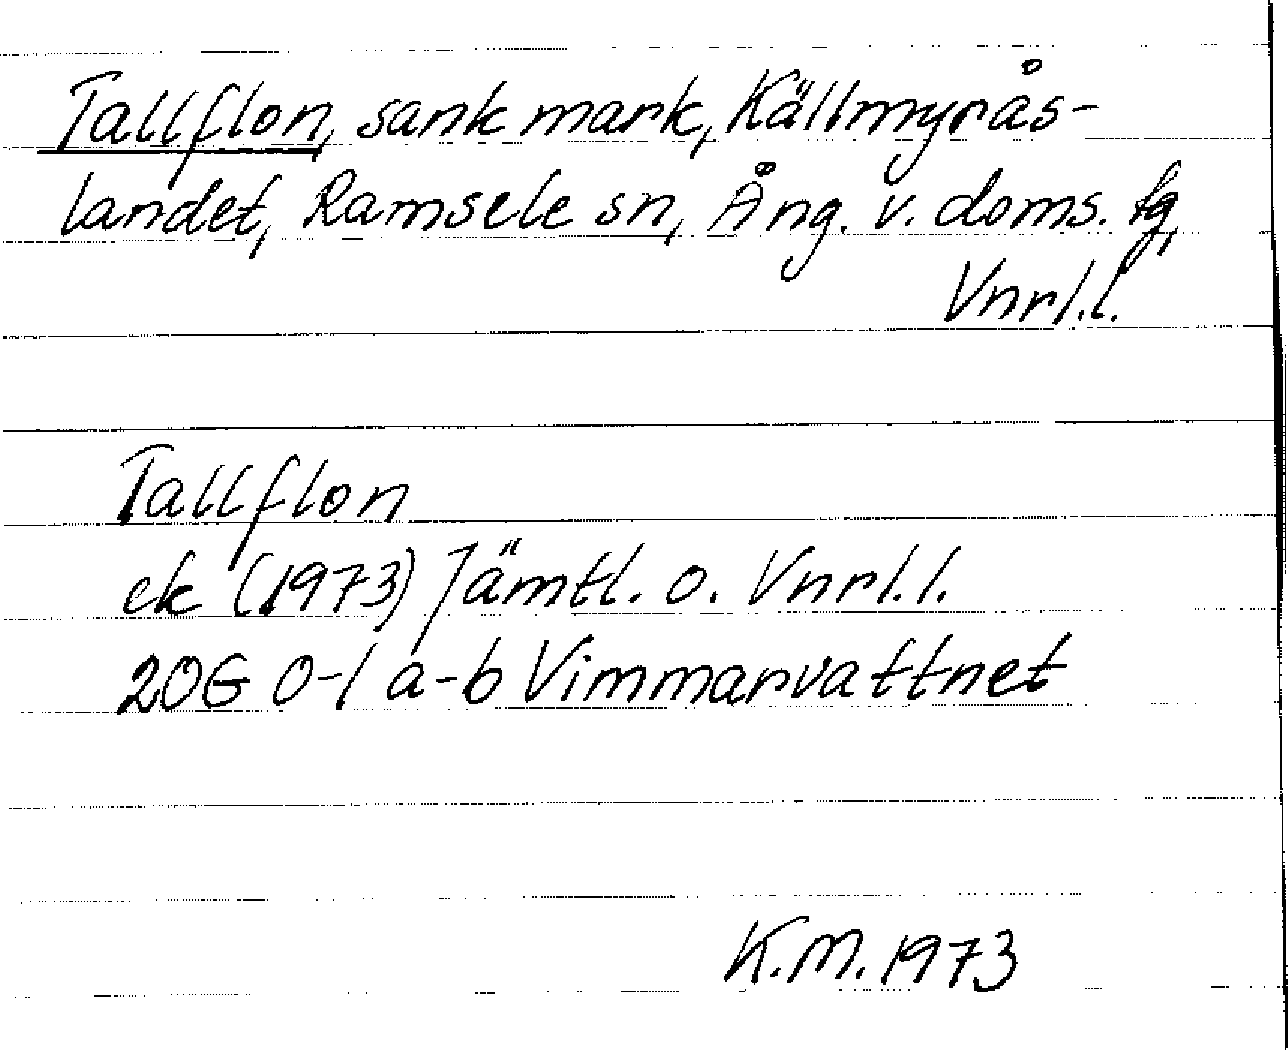 Tallflon, sank mark, Källmyrås-
landet, Ramsele sn, Ång. v. doms. tg,
Vnrl.l.
Tallflon
ek (1973) Jämtl. o. Vnrl.l.
20G 0-1 a-b Vimmarvattnet
K.M. 1973